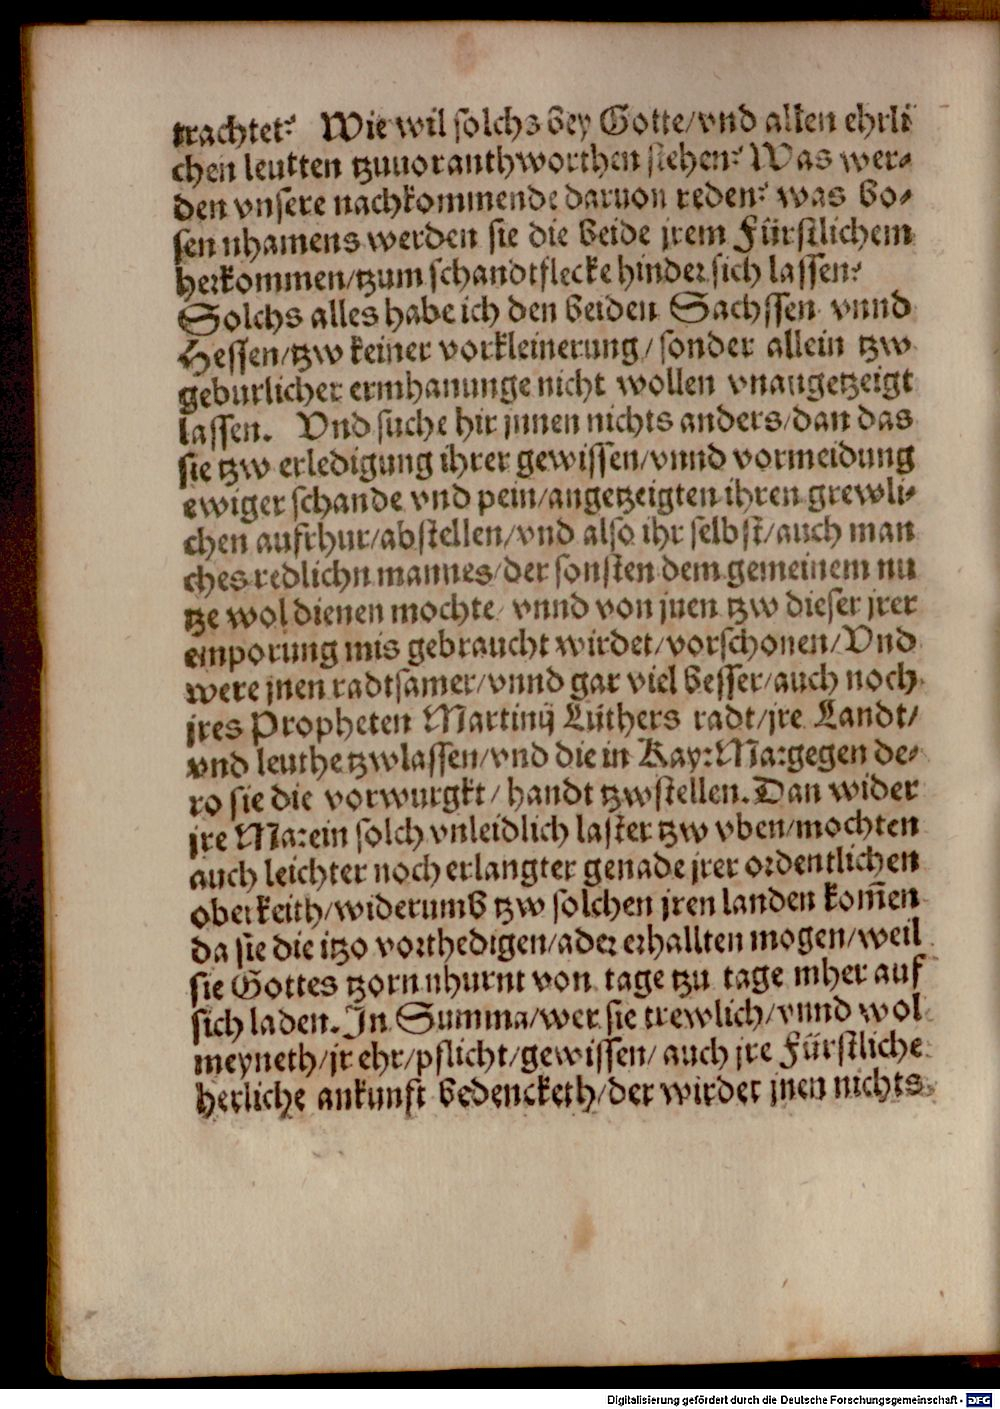 trachtet? Wie wil solchs bey Gotte/vnd allen ehrli
chen leutten tzuuoranthworthen stehen? Was wer-
den vnsere nachkommende daruon reden? was bo-
sen nhamens werden sie die beide jrem Fürstlichem
herkommen/tzum schandtflecke hinder sich lassen?
Solchs alles habe ich den beiden Sachssen vnnd
Hessen/tzw keiner vorkleinerung/sonder allein tzw
geburlicher ermhanunge nicht wollen vnangetzeigt
lassen. Vnd suche hir jnnen nichts anders/dan das
sie tzw erledigung ihrer gewissen/vnnd vormeidung
ewiger schande vnd pein/angetzeigten ihren grewli-
chen aufrhur/abstellen/vnd also ihr selbst/auch man
ches redlichn mannes/der sonsten dem gemeinem nu
tze wol dienen mochte/vnnd von jnen tzw dieser jrer
emporung mis gebraucht wirdet/vorschonen/Vnd
were jnen radtsamer/vnnd gar viel besser/auch noch
jres Propheten Martinij Luthers radt/jre Landt/
vnd leuthe tzwlassen/vnd die in Kay: Ma: gegen de-
ro sie die vorwurgkt/handt tzwstellen. Dan wider
jre Ma: ein solch vnleidlich laster tzw vben/mochten
auch leichter noch erlangter genade jrer ordentlichen
oberkeith/widerumb tzw solchen jren landen kom̄en
da sie die itzo vorthedigen/ader erhallten mogen/weil
sie Gottes tzorn nhurnt von tage tzu tage mher auf
sich laden. In Summa/wer sie trewlich/vnnd wol
meyneth/jr ehr/pflicht/gewissen/auch jre Fürstliche
herliche ankunft bedencketh/der wirdet jnen nichts
Digitalisierung gefördert durch die Deutsche Forschungsgemeinschaft - DFG